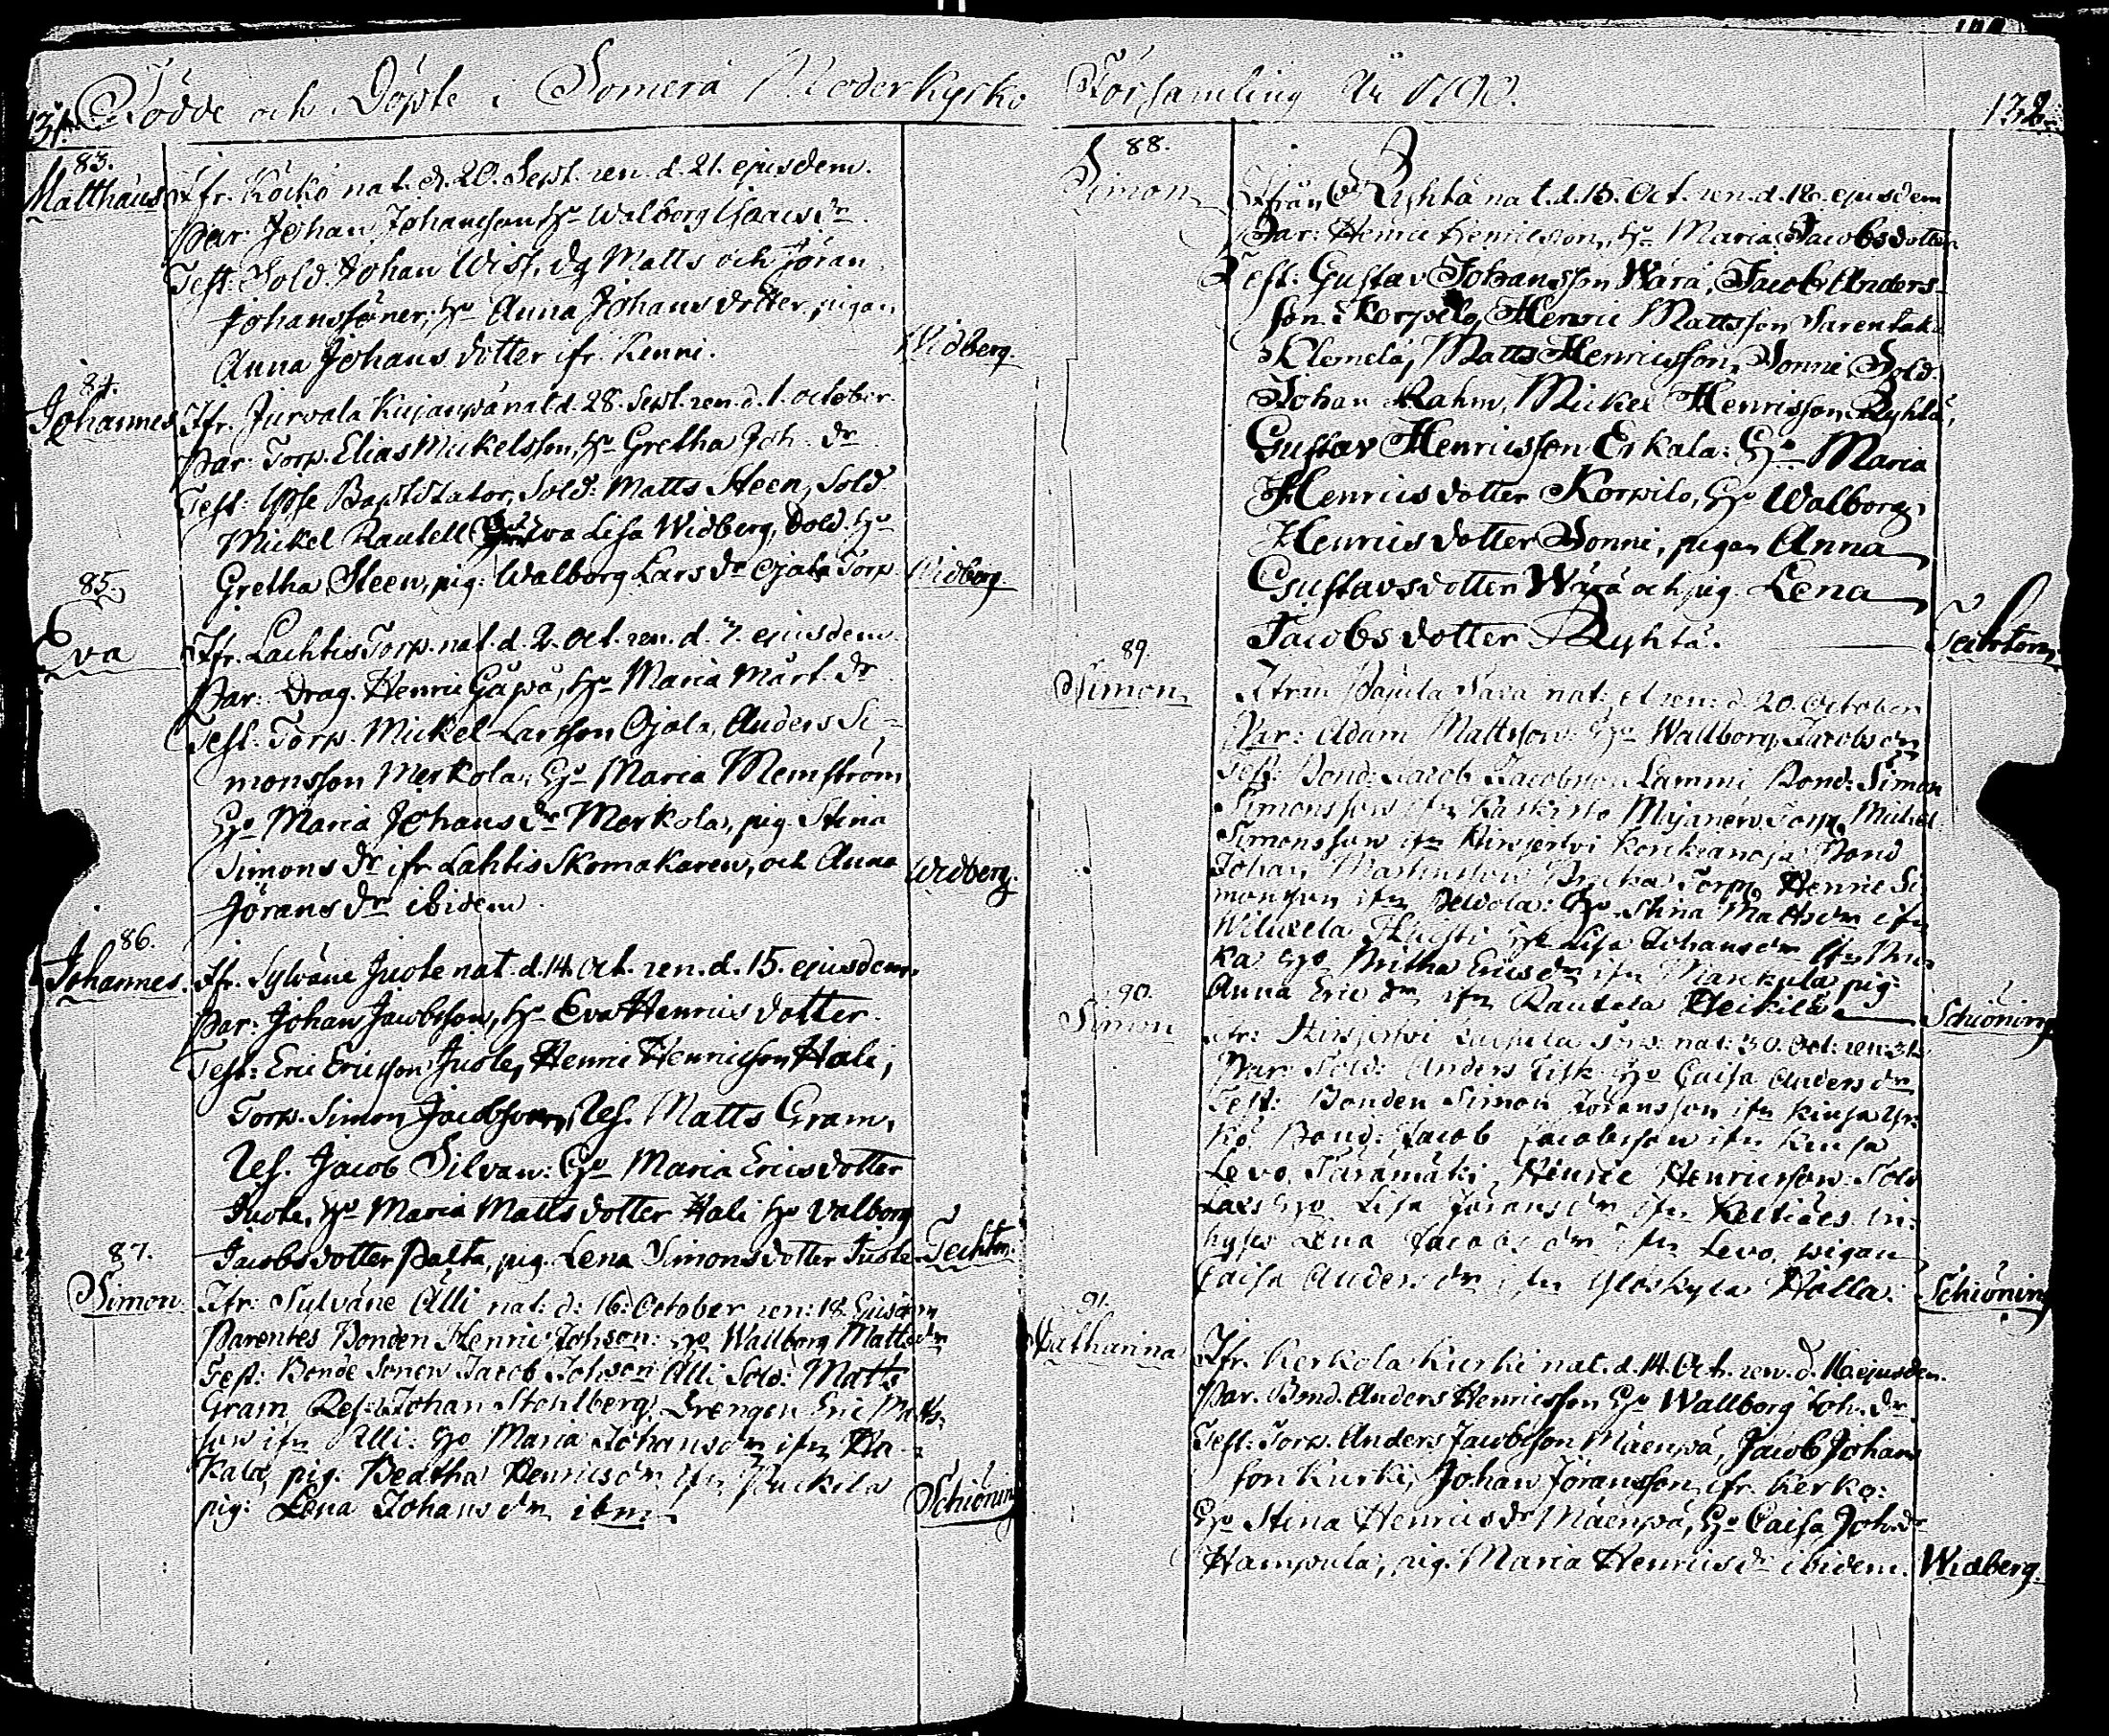 131. Födde och Döpte i Somero Moderkyrko
83.
Matthäus Ifr. Köckö nat. d. 20. Sept. ren. d. 21. ejusdem.
Par: Johan Johansson hu Walborg Isaacs dr
Test: Sold. Johan Wist, dg Matts och Jöran
Johanssöner; hu Anna Johans dotter, pigan
Anna Johans dotter ifr. Kenni. Widberg.
84.
Johannes Ifr. Jurvala Kujanpä nat d. 28. Sept. ren. d. 1. october
Par: Torp. Elias Mickelsson, hu Gretha Joh. dr
Test: Ipse Baptistator, Sold: Matts Steen, Sold
Mickel Rautell Eva Lisa Widberg, Sold. hu
Gretha Steen, pig: Walborg Lars dr Ojala Torp Widberg
85.
Eva Ifr. Lachtis Torp. nat. d. 2. Oct. ren. d. 7. ejusdem
Par: Drag. Henric Gåpå, hu Maria Mårt. dr
Test: Torp. Mickel Larsson Ojala, Anders Si-
monsson Merkola, Hu Maria Memström
Hu Maria Johans dr Merkola, pig. Stina
Simons dr ifr Lahtis Skomakaren, och Anna Widberg.
Jörans dr ibidem.
86.
Johannes. Ifr. Sylväne Juole nat. d. 14. Oct. ren. d. 15. ejusdem.
Par: Johan Jacobsson, hu Eva Henrics dotter.
Test: Eric Ericsson Juole, Henric Henricsson Hali,
Torp. Simon Jacobsson, Res. Matts Gram,
Res. Jacob Silvan: Hu Maria Erics dotter
Juole, hu Maria Matts dotter Hali hu Valborg
Jacobs dotter Palta, pig. Lena Simons dotter Juole. Techtor:
87.
Simon Ifr: Sylväne Älli nat: d: 16: October ren: 18 Ejusdem
Parentes Bonden Henric Johsson: Hu Wallborg Mattsdr
Test: Bonde Sonen Jacob Johsson Älli Sold: Matts
Gram Res: Johan Stohlberg, Drengen Eric Matts-
son ifn Älli: Hu Maria Johansdr ifn Ha-
kala, pig. Beatha Henricsdr ifn Puckila
pig: Lena Johansdr ibm Schiöning
Församling År 1790. 132.
88.
Simon Ifrån Ryhtä nat. d. 15. Oct. ren. d. 18. ejusdem
Par: Henric Henricsson, hu Maria Jacobs dotter
Test: Gustav Johansson Wärä, Jacob Anders-
son Korpilo, Henric Mattsson Sarentaka
Klemelä, Matts Henricsson, Sonni Sold.
Johan Rahm, Mickel Henricsson Ryhtä,
Gustav Henricsson Erkala: Hu Maria
Henrics dotter Korpilo, Hu Walborg
Henrics dotter Sonni, pigan Anna
Gustavs dotter Wärä och pig. Lena
Jacobs dotter Ryhtä. Techtor
89.
Simon Ifrån Pajula nat: et ren: d. 20. October
Par: Adam Mattsson Hu Wallborg Jacobsdr
Test: Bond: Jacob Jacobsson Lammi Bond: Simon
Simonsson ifn Kaskisto Mojanen Torp. Mickel
Simonsson ifn Hirsjerfvi Bond
Johan Martinsson Torp. Henric Si-
monson ifn Hu Stina Mattsdr ifn
Hu Lisa Johansdr ifn
ka Hu Britha Ericsdr ifn Marckula pig:
Anna Eric dr ifn Rautela Heikilä Schiöning
90.
Simon ifr: Hirsjerfvi Torp: nat: 30. Oct: ren: 31.
Par: Sold: Anders Fisk Hu Caisa Andersdr
Test: Bonden Simon Göransson ifn
kö Bond: Jacob Jacobsson ifn
Levo, Henric Henricsson: Sold
Hu Lisa Göransdr ifn in-
hyses Lena Jacobsdr ifn Levo, pigan
Caisa Andersdr ifn Halla: Schiöning
91.
Catharina Ifr. Kerkola Kurki nat. d. 14. Oct. ren. d. 16 ejusdem.
Par. Bond. Anders Henricsson Hu Wallborg Joh. dr
Test: Torp. Anders Jacobsson Mäenpä, Jacob Johans
son Kurki, Johan Jöransson ifr. Kerko:
Hu Stina Henrics dr Mäenpä, Hu Caisa Joh. dr
Hampula, pig. Maria Henrics dr ibidem. Widberg.